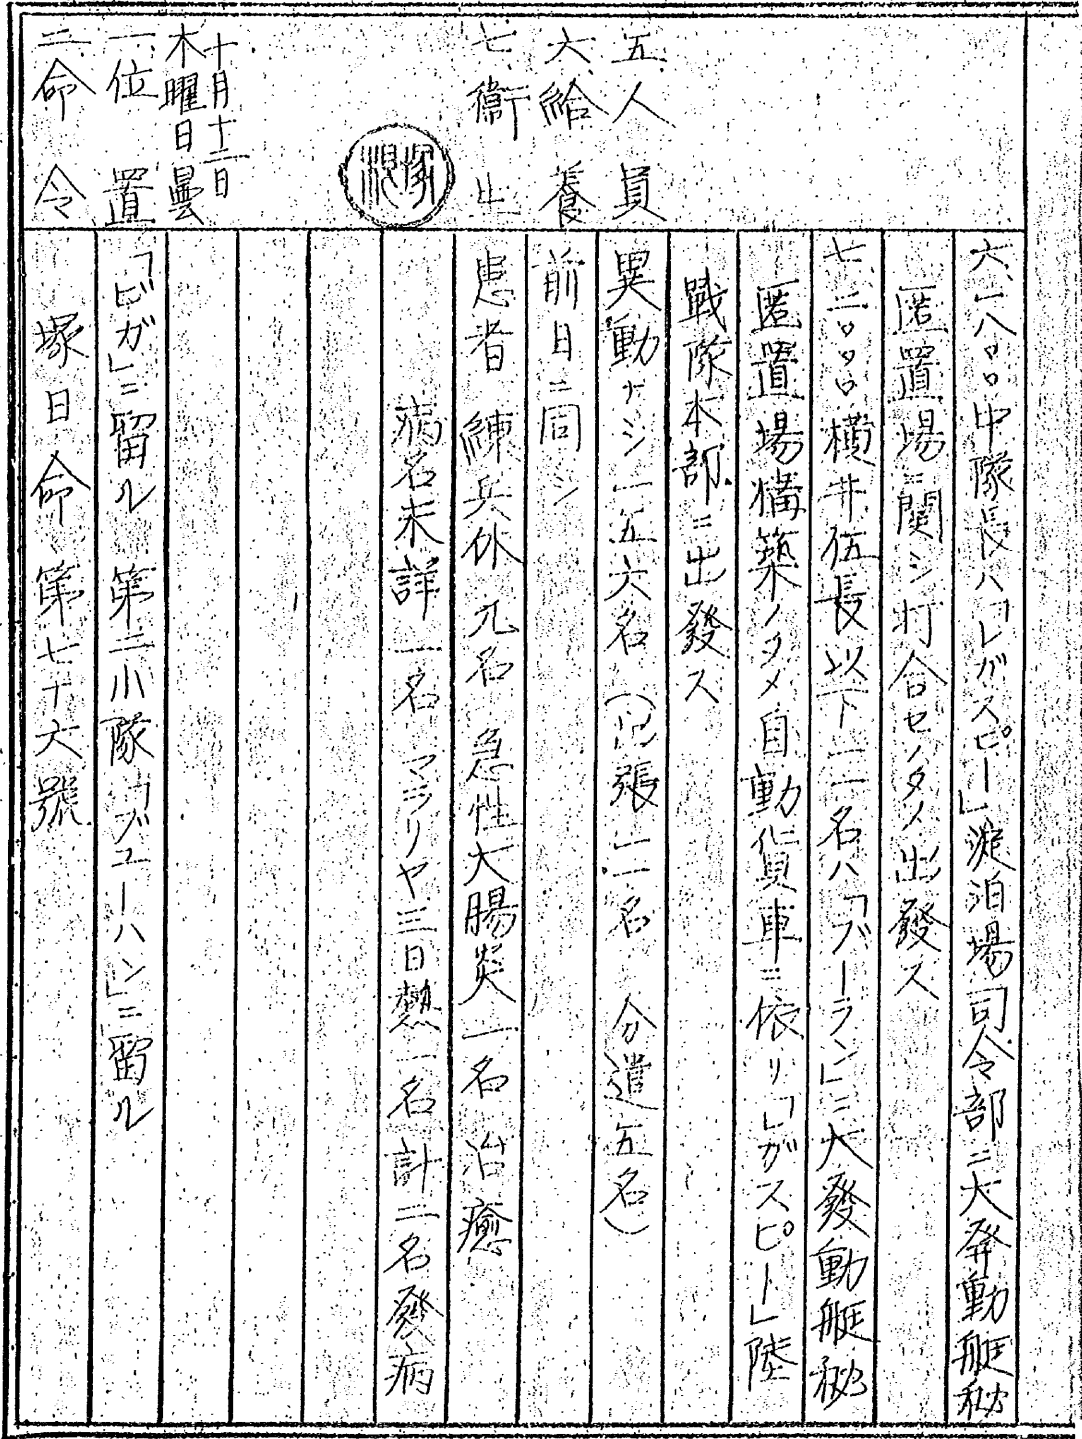 六、一八〇〇中隊長ハ「レガスピー」碇泊場司令部ニ大発動艇秘
匿置場ニ関シ打合セノタメ出發ス
七、二〇〇〇横井伍長以下一一名ハ「ブーラン」ニ大發動艇秘
匿置場構築ノタメ自動貨車ニ依リ「レガスピー」陸
戰隊本部ニ出發ス
五、人員
異動ナシ一五六名（出張一一名 分遣五名）
六、給養
前日ニ同シ
七、衞生
患者 練兵休 九名 急性大腸炎一名 治癒
病名未詳一名 マラリヤ三日熱一名 計二名發病
十月十二日
木曜日曇
一、位置
「ビガ」ニ留ル 第二小隊「カブユーハン」ニ留ル
二、命令
塚日命第七十六號